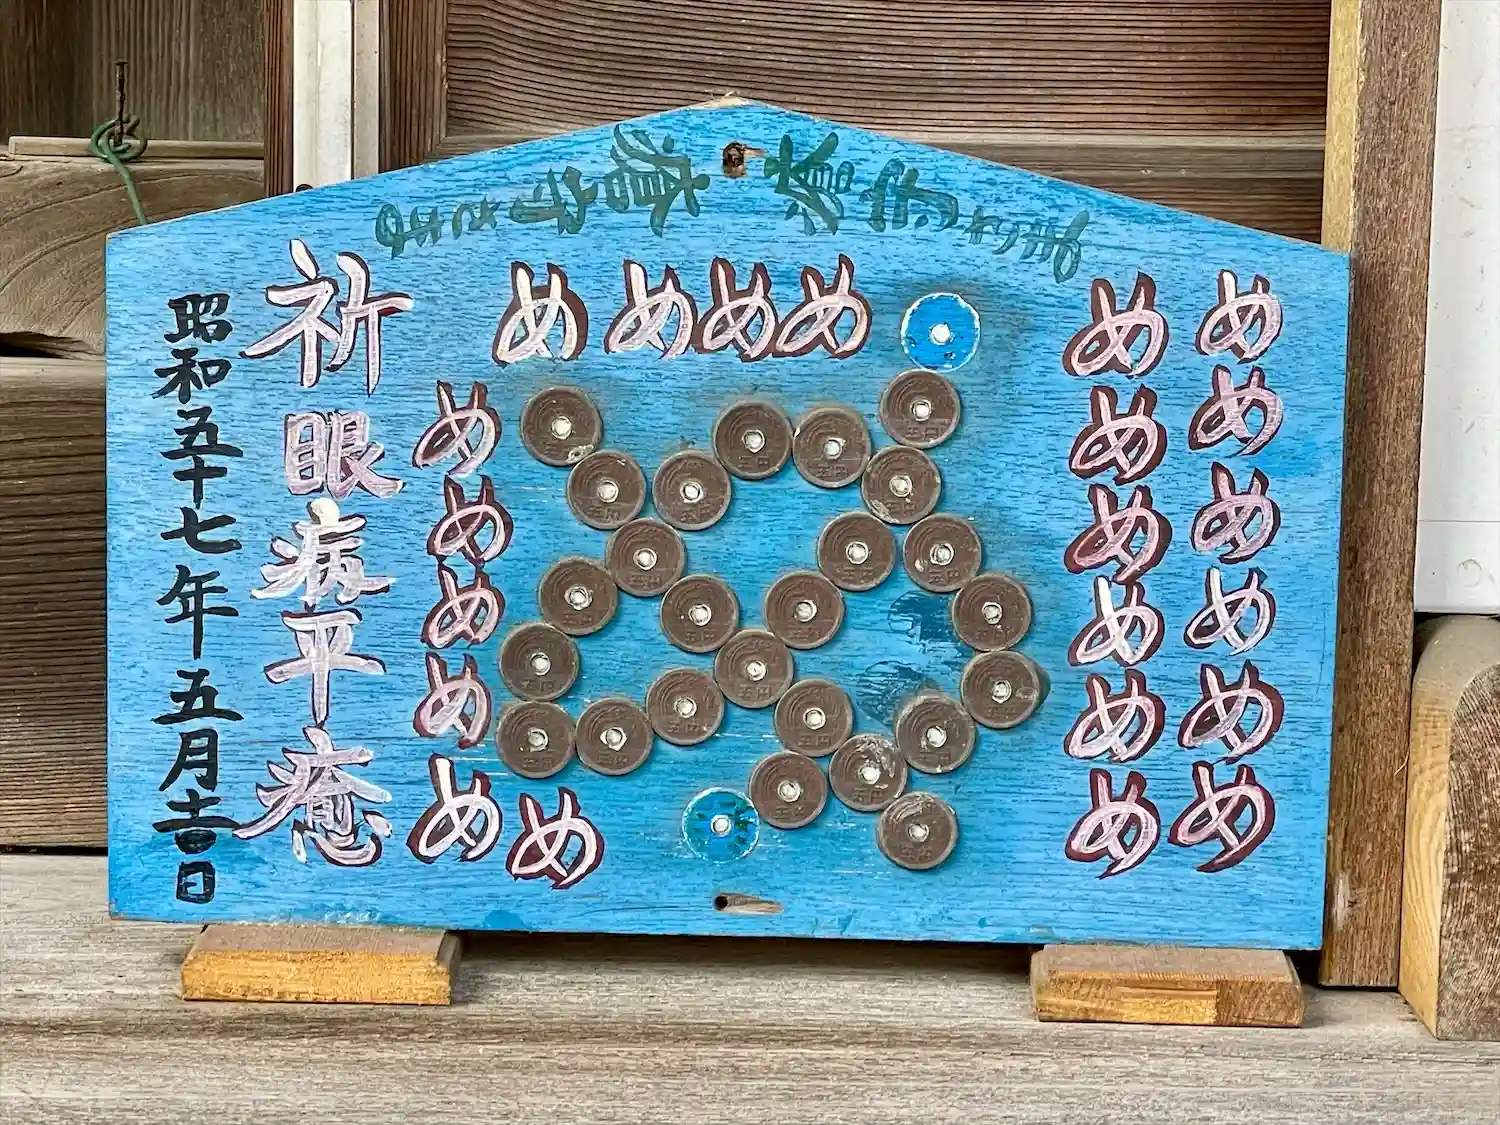 めめめめめめ
めめめめめめ
めめめめ
めめめめめ
め
祈眼病平癒
昭和五十七年五月吉日